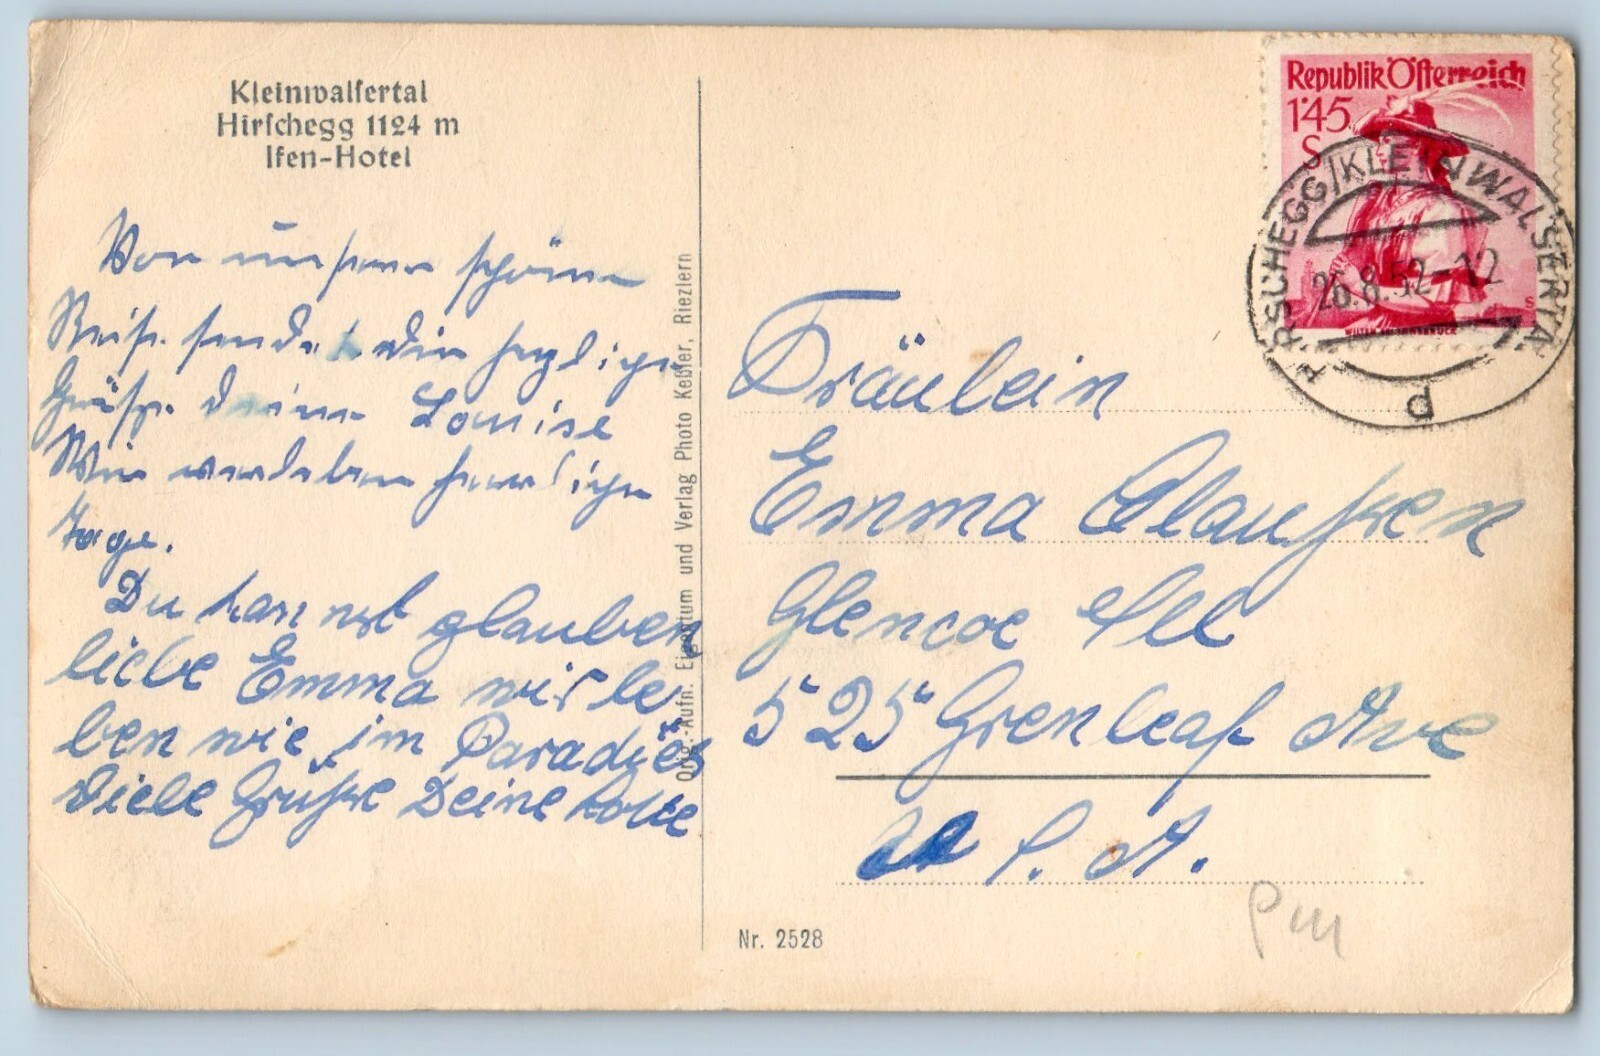 Kleinwalsertal
Hirschegg 1124 m
Ifen-Hotel
Von unserer schönen
Reise sendet dir herzliche
Grüße deine Louise
Wir verleben herrliche
Tage.
Du kannst glauben
liebe Emma wir le-
ben wie im Paradies
Viele Grüße Deine
Orig.-Aufn. Eigentum und Verlag Photo Keßler, Riezlern
Republik Österreich
1.45
S
WILTEN BEI INNSBRUCK
HIRSCHEGG/KLEINWALSERTAL
26.8.52-12
d
Fräulein
Emma Claussen
Glencoe Ill
525 Grenleaf Ave
U. S. A.
Nr. 2528